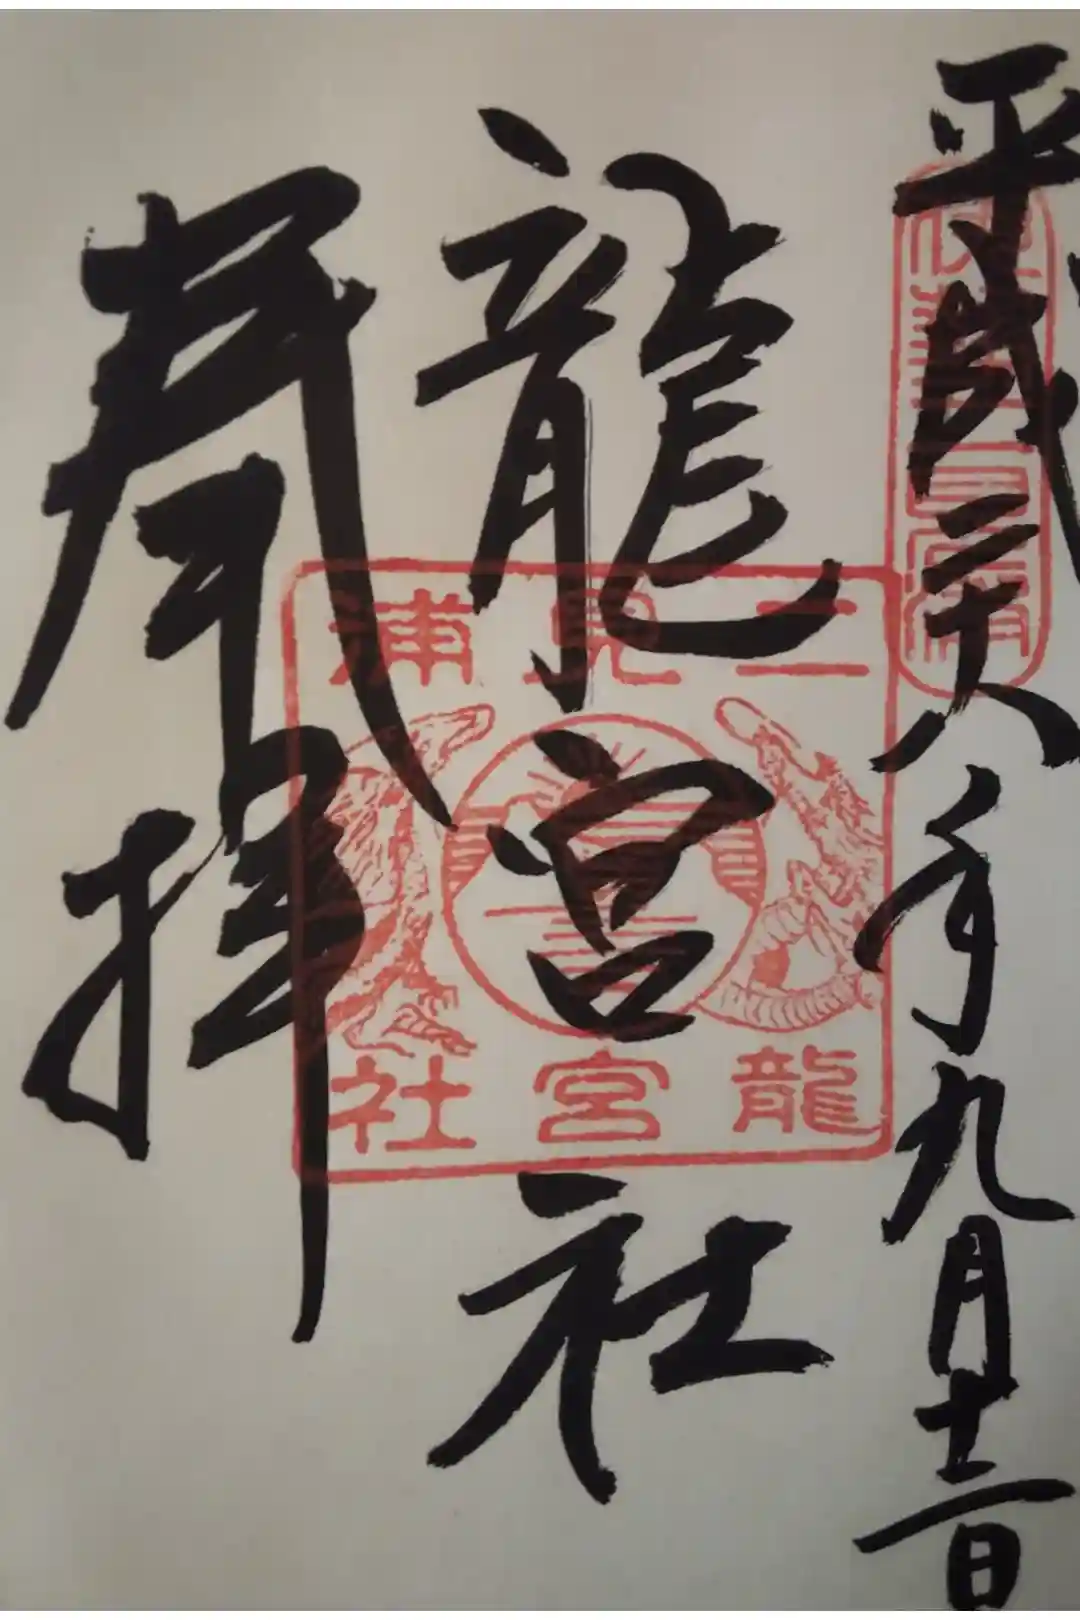 平成二十八年九月十二日
龍宮社
奉拝
二見浦
龍宮社